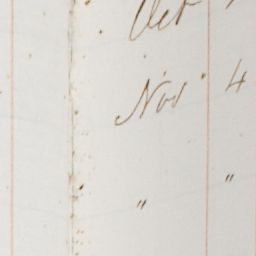 Oct
Nov 4
" "